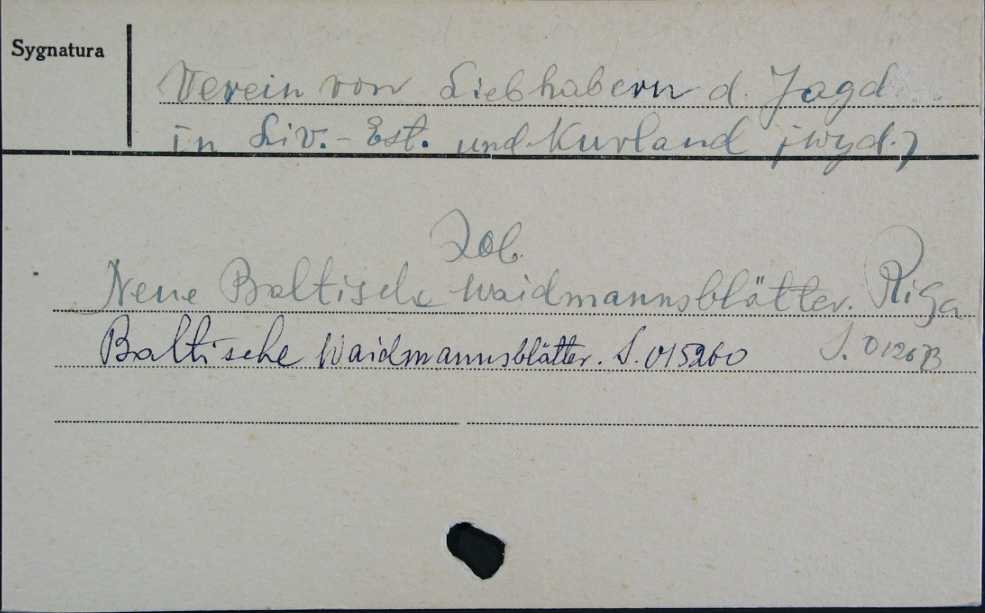 Sygnatura
Verein von Liebhabern d. Jagd
in Liv.- Est. und Kurland (wyd.)
Zob.
Neue Baltische Waidmannsblätter. Riga
Baltische Waidmannsblätter. S. 015260 S. 0126B